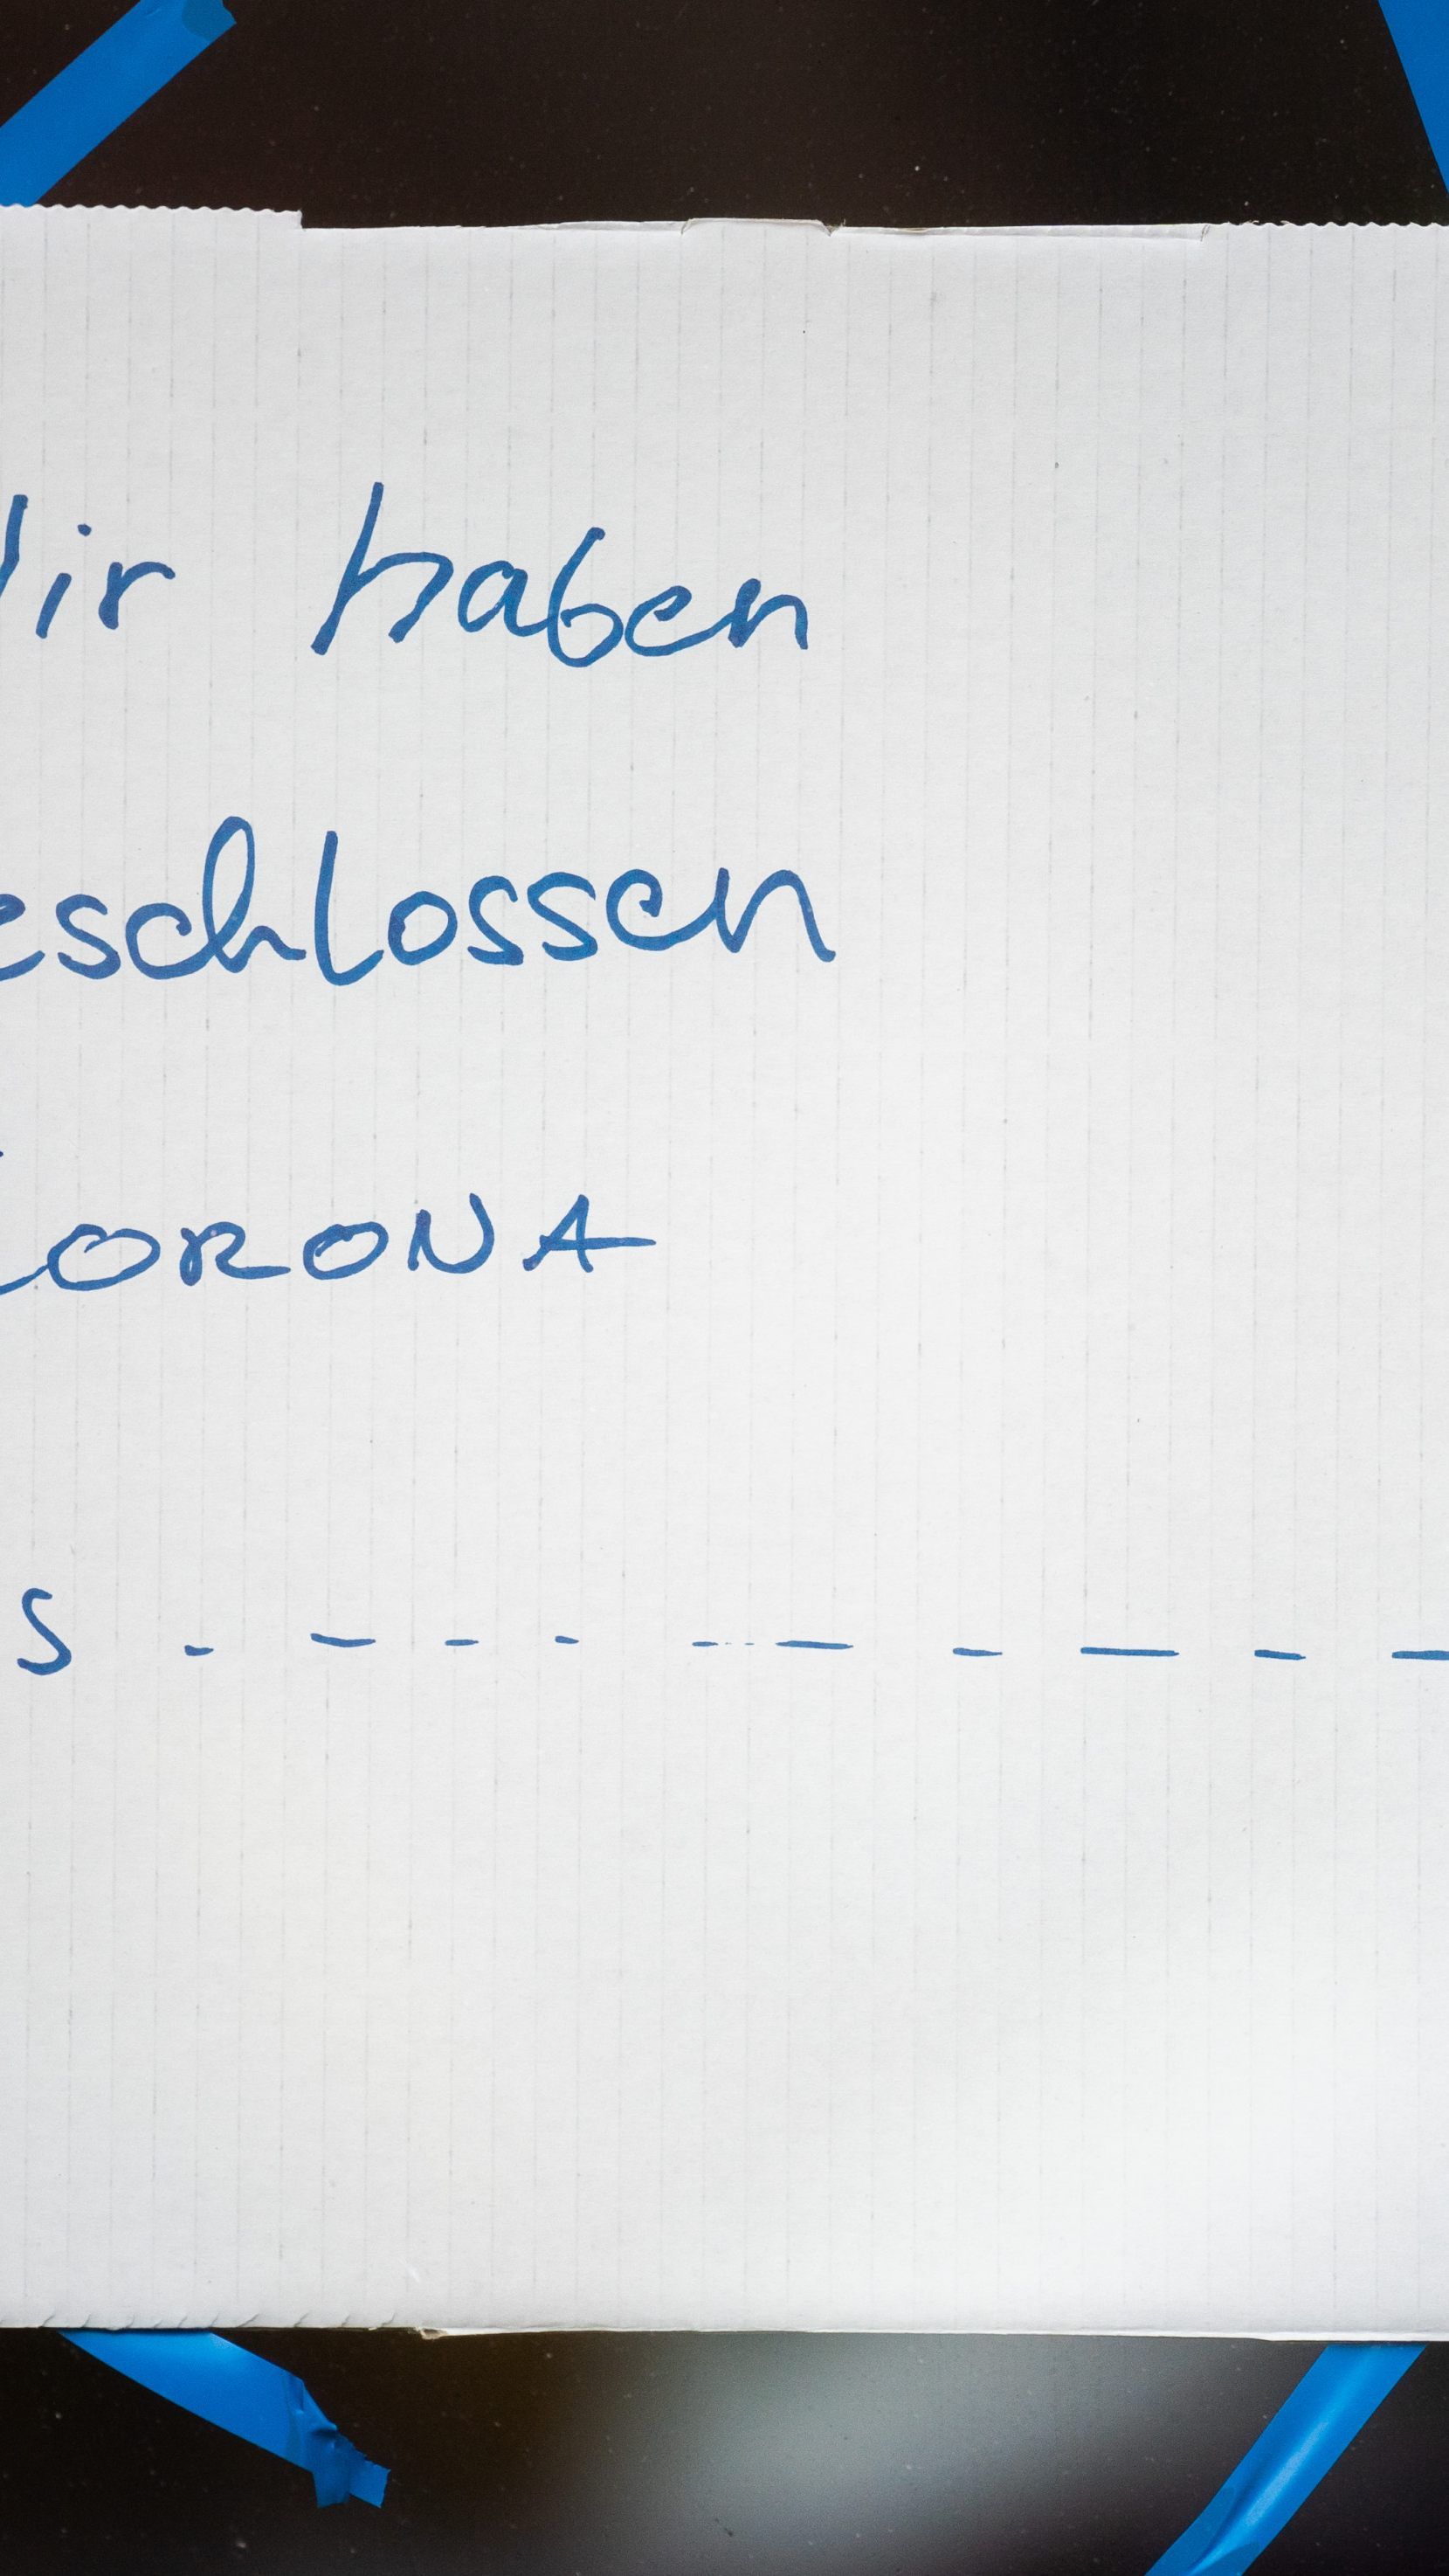 ir haben
eschlossen
ORONA
S - - - - - - - - - -